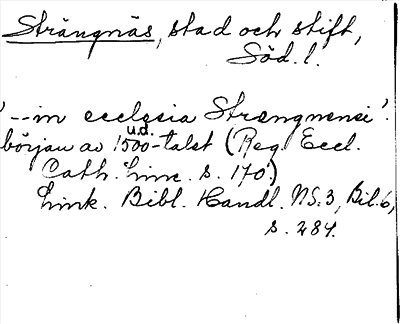 Strängnäs, stad och stift,
Söd. l.
'--in ecclesia Strengnensi'.
u.d.
början av 1500-talet (Reg. Eccl.
Cath. Linc. s. 170)
Link. Bibl. Handl. NS. 3, Bil. 6,
s. 284.